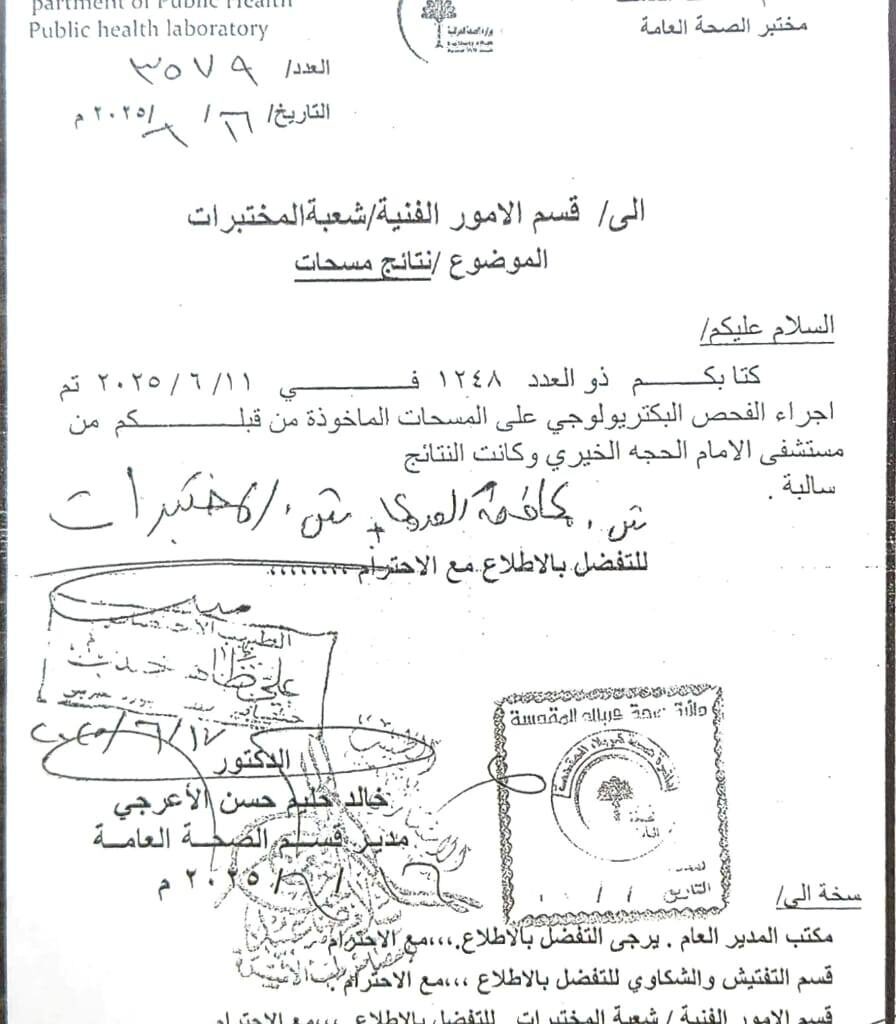 partment of Public Health
Public health laboratory
مختبر الصحة العامة
وزارة الصحة العراقية
العدد/ ٣٥٧٩
التاريخ/ ١٦ / ٦ /٢٠٢٥ م
الى/ قسم الامور الفنية/شعبةالمختبرات
الموضوع /نتائج مسحات
السلام عليكم/
كتابكم ذو العدد ١٢٤٨ في ٢٠٢٥/٦/١١ تم
اجراء الفحص البكتريولوجي على المسحات الماخوذة من قبلكم من
مستشفى الامام الحجه الخيري وكانت النتائج
سالبة .
ش. مكافحة العدوى + ش. المختبرات
للتفضل بالاطلاع مع الاحترام ،،،،،،،،
الطبيب
علي
٢٠٢٥/٦/١٧
الدكتور
خالد حليم حسن الأعرجي
مدير قسم الصحة العامة
٢٠٢٥ م
دائرة صحة كربلاء المقدسة
دائرة صحة كربلاء المقدسة
العدد
التاريخ / /
سخة الى/
مكتب المدير العام . يرجى التفضل بالاطلاع.،،،مع الاحترام
قسم التفتيش والشكاوي للتفضل بالاطلاع ،،،مع الاحترام .
قسم الامور الفنية / شعبة المختبرات للتفضل بالاطلاع ،،،،مع الاحترام